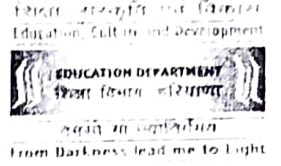 शिक्षा संस्कृति एवं विकास
Education, Culture and Development
EDUCATION DEPARTMENT
शिक्षा विभाग हरियाणा
तमसो मा ज्योतिर्गमय
From Darkness lead me to Light